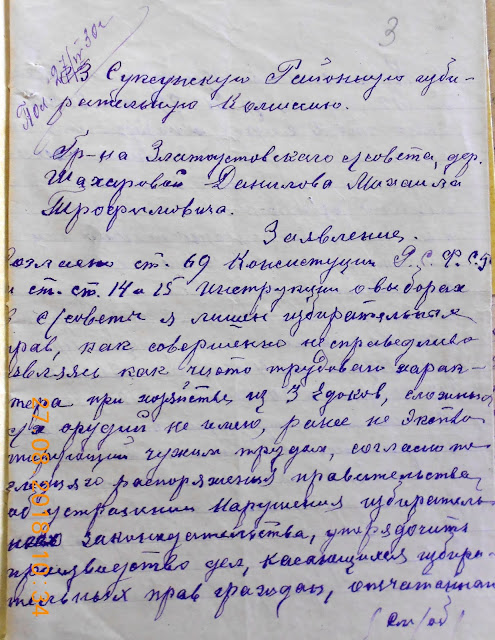 Пол. 27/IV 30 г
3
В Суксунскую Районную изби-
рательную Комиссию.
Гр-на Златоустовского с/совета, дер.
Шахаровой Данилова Михаила
Трофимовича.
Заявление.
Согласно ст. 69 Конституции Р.С.Ф.С.Р
и ст. ст. 14 и 15 Инструкции о выборах
в с/советы я лишен избирательных
прав, как совершенно несправедливо
являясь как чисто трудового харак-
тера при хозяйстве из 3 едоков, сложных
с/х орудий не имею, ранее не экспло
тирующий чужим трудом, согласно по
следняго распоряжения правительства,
об устранении Нарушения избиратель
ного законодательства, упорядочить
производство дел, касающихся избира-
тельных прав граждан, отпечатанная
27.09.2018 10:34